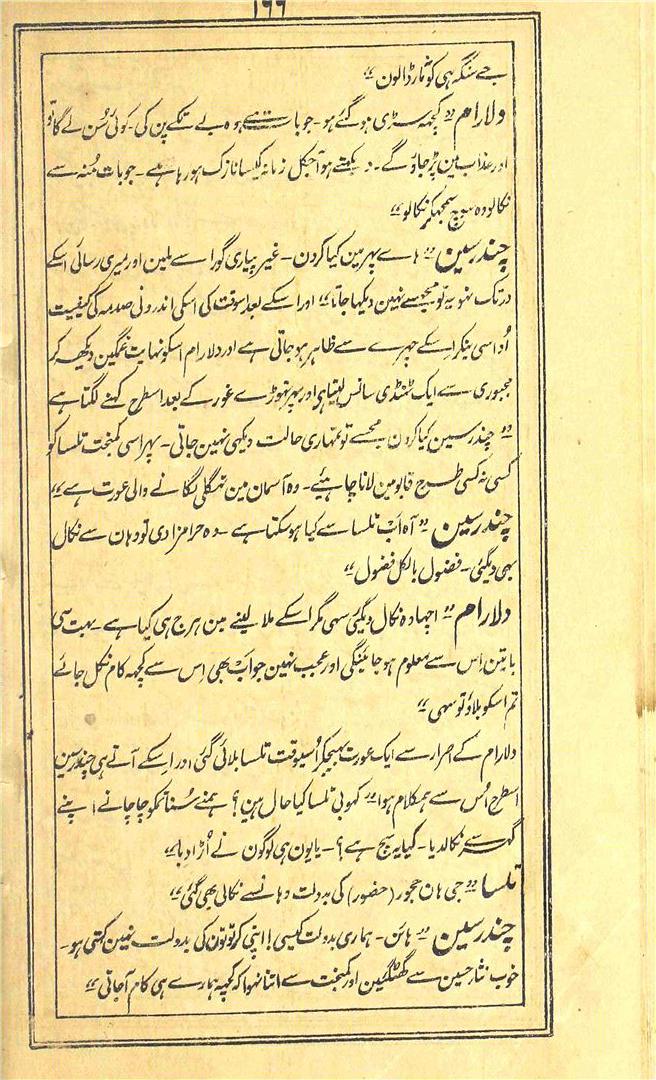 ۱۶۶
جے سنگہ ہی کو مار ڈالون‘‘
دلارام ’’کچہہ سڑی ہو گئے ہو۔ جو بات ہے وہ بے تکے پن کی۔ کوئی سُن لے گا تو
اور عذاب مین پڑ جاؤ گے۔ دیکہتے ہو آجکل زمانہ کیسا نازک ہو رہا ہے۔ جو بات مُنہ سے
نکالو وہ سوچ سمجہکر نکالو‘‘
چندر سین ’’ہاے پہر مین کیا کرون۔ غیر پیاری گورا سے ملین اور میری رسائی اسکے
در تک نہو یہ تو مجہسے نہین دیکہا جاتا‘‘ اور اسکے بعد اسوقت کی اسکی اندرونی صدمہ کی کیفیت
اُداسی بنکر اسکے چہرے سے ظاہر ہو جاتی ہے اور دلارام اسکو نہایت غمگین دیکہہ کر
مجبوری سے ایک ٹہنڈی سانس لیتا ہی اور پہر تہوڑے غور کے بعد اسطرح کہنے لگتا ہے
’’چندر سین کیا کرون مجہسے تو تمہاری حالت دیکہی نہین جاتی۔ پہر اسی کمبخت تلسا کو
کسی نہ کسی طرح قابو مین لانا چاہئیے۔ وہ آسمان مین تہگلی لگانے والی عورت ہے‘‘
چندر سین ’’آہ اب تلسا سے کیا ہو سکتا ہے۔ وہ حرامزادی تو وہان سے نکال
بہی دیگئی۔ فضول بالکل فضول‘‘
دلارام ’’اچہا وہ نکال دیگئی سہی مگر اسکے ملا لینے مین ہرج ہی کیا ہے۔ بہت سی
باتین اس سے معلوم ہو جائینگی اور عجب نہین جو اب بہی اس سے کچہہ کام نکل جائے
تم اسکو بلاؤ تو سہی‘‘
دلارام کے اصرار سے ایک عورت بہیجکر اُسیوقت تلسا بلائی گئی اور اسکے آتے ہی چندر سین
اسطرح اُس سے ہمکلام ہوا ’’کہو بی تلسا کیا حال ہین؟ ہمنے سُنا تمکو چاچا نے اپنے
گہر سے نکالدیا۔ کیا یہ سچ ہے؟۔ یا یون ہی لوگون نے اُڑا دیا‘‘
تلسا ’’جی ہان حجور (حضور) کی بدولت وہانسے نکالی بھی گئی‘‘
چندر سین ’’ہائن۔ ہماری بدولت کیسی!! اپنی کرتوتون کی بدولت نہین کہتی ہو۔
خوب نثار حسین سے گھٹگین اور کمبخت سے اتنا نہوا کہ کچہہ ہمارے ہی کام آ جاتی‘‘